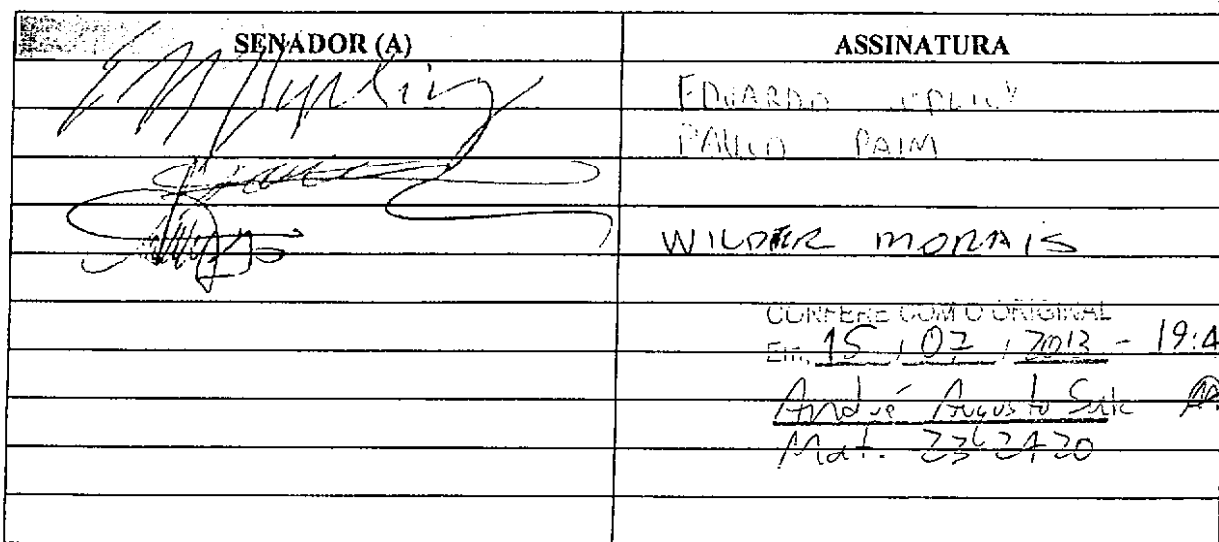 SENADOR (A) ASSINATURA
EDUARDO SUPLICY
PAULO PAIM
WILDER MORAIS
CONFERE COM O ORIGINAL
Em, 15 / 07 / 2013 - 19:4
André Augusto
Mat.